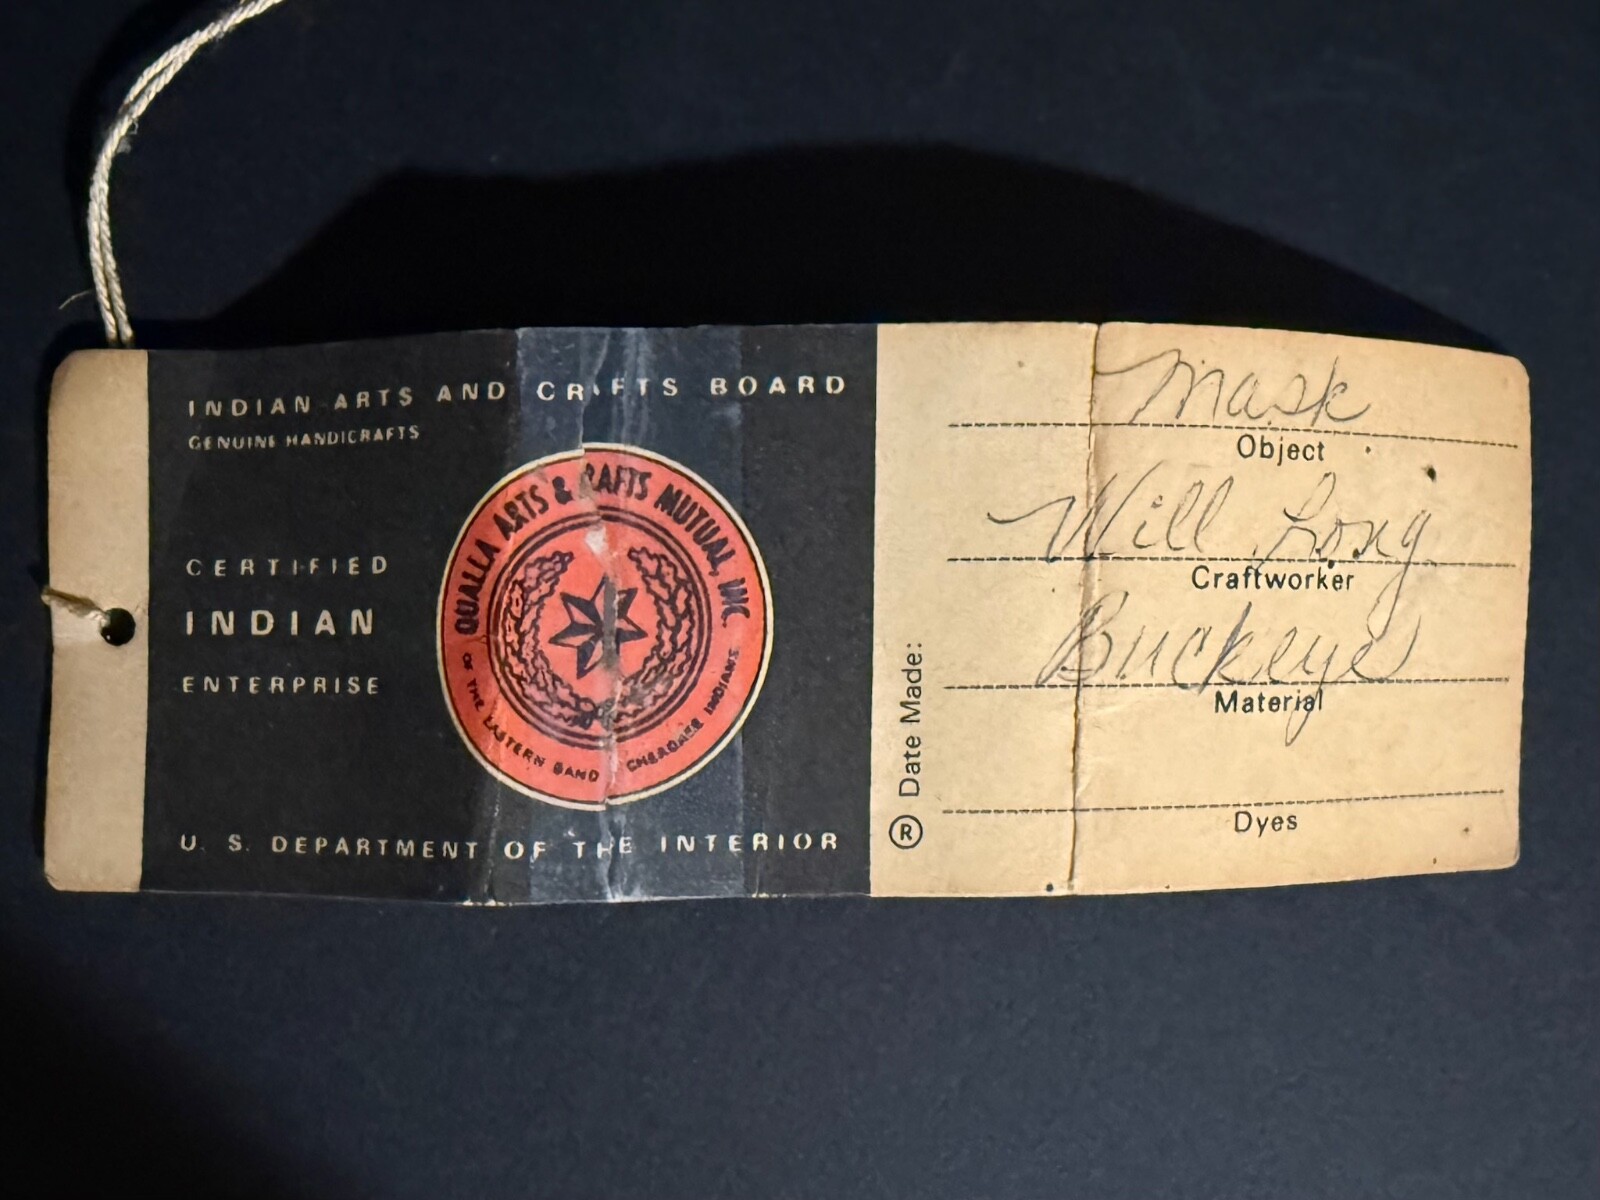 INDIAN ARTS AND CRAFTS BOARD
GENUINE HANDICRAFTS
CERTIFIED
INDIAN
ENTERPRISE
QUALLA ARTS & CRAFTS MUTUAL, INC.
OF THE EASTERN BAND CHEROKEE INDIANS
U. S. DEPARTMENT OF THE INTERIOR
® Date Made:
Mask
Object
Will Long
Craftworker
Buckeye
Material
Dyes